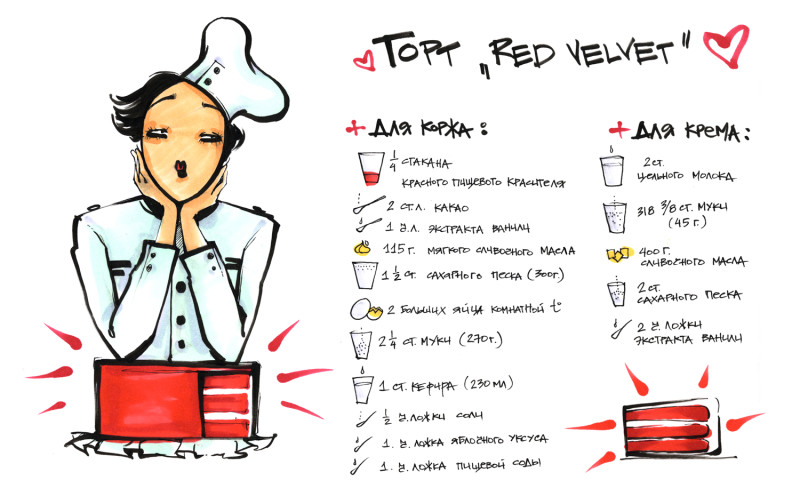 ТОРТ „RED VELVET"
+ ДЛЯ КОРЖА:
1/4 СТАКАНА
КРАСНОГО ПИЩЕВОГО КРАСИТЕЛЯ
2 СТ.Л. КАКАО
1 Ч.Л. ЭКСТРАКТА ВАНИЛИ
115 Г. МЯГКОГО СЛИВОЧНОГО МАСЛА
1 1/2 СТ. САХАРНОГО ПЕСКА (300Г.)
2 БОЛЬШИХ ЯЙЦА КОМНАТНОЙ t°
2 1/4 СТ. МУКИ (270Г.)
1 СТ. КЕФИРА (230 МЛ)
1/2 Ч. ЛОЖКИ СОЛИ
1. Ч. ЛОЖКА ЯБЛОЧНОГО УКСУСА
1. Ч. ЛОЖКА ПИЩЕВОЙ СОДЫ
+ ДЛЯ КРЕМА:
2 СТ.
ЦЕЛЬНОГО МОЛОКА
3/8 СТ. МУКИ
(45 Г.)
400 Г.
СЛИВОЧНОГО МАСЛА
2 СТ.
САХАРНОГО ПЕСКА
2 Ч. ЛОЖКИ
ЭКСТРАКТА ВАНИЛИ